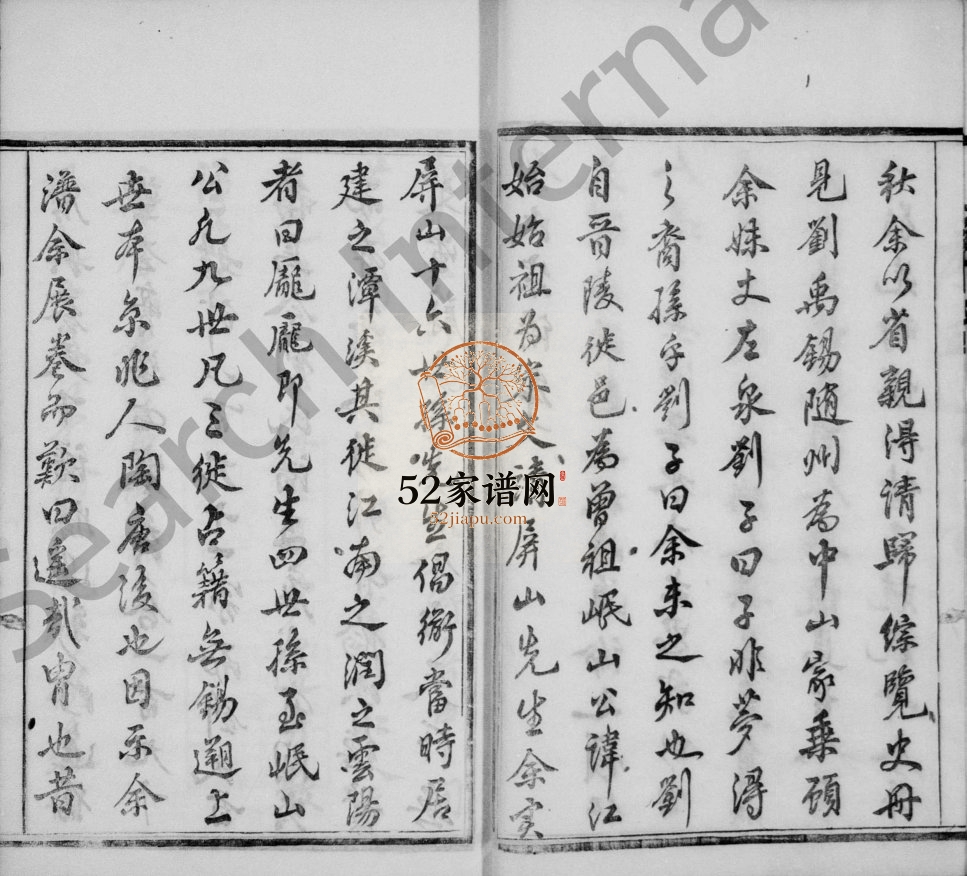 秋余以省親得请歸綜覽史冊
見劉禹錫随州為中山家乗顧
余妹丈左泉劉子曰子非夢得
之裔孫乎劉子曰余未之知也劉
自晉陵徙邑為曾祖岷山公諱江
始始祖为宋文靖屏山先生余实
屏山十六世孫 倡衛當時居
建之潭溪其徙江南之潤之雲陽
者曰龎龎即先生四世孫至岷山
公凡九世凡三徙占籍無錫遡上
世本京兆人陶唐後也因示余
潘余展卷而歎曰遥哉冑也昔
52家谱网
52jiapu.com
Search Interna